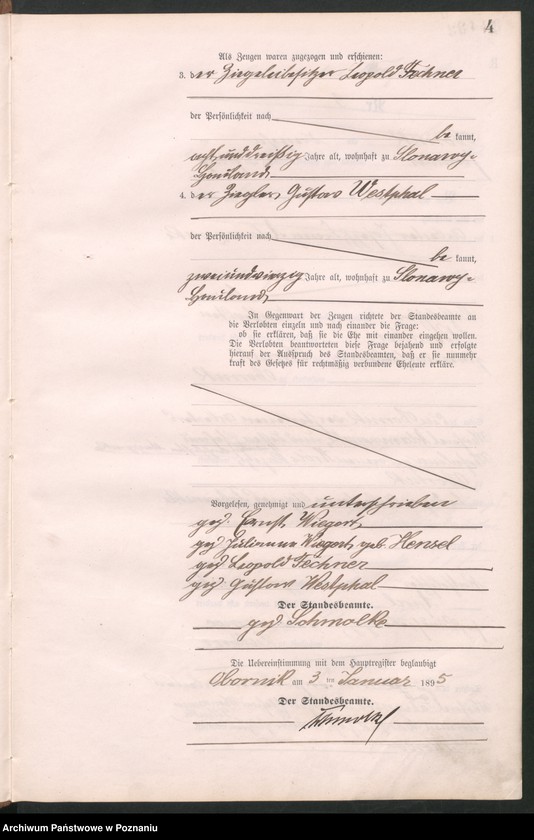 4
Als Zeugen waren zugezogen und erschienen:
3. der Ziegeleibesitzer Leopold Fechner
der Persönlichkeit nach
be kannt,
acht und dreißig Jahre alt, wohnhaft zu Slonawy-
Hauland
4. der Ziegler Gustav Westphal
der Persönlichkeit nach
be kannt,
zweiundvierzig Jahre alt, wohnhaft zu Slonawy-
Hauland
In Gegenwart der Zeugen richtete der Standesbeamte an
die Verlobten einzeln und nach einander die Frage:
ob sie erklären, daß sie die Ehe mit einander eingehen wollen.
Die Verlobten beantworteten diese Frage bejahend und erfolgte
hierauf der Ausspruch des Standesbeamten, daß er sie nunmehr
kraft des Gesetzes für rechtmäßig verbundene Eheleute erkläre.
Vorgelesen, genehmigt und unterschrieben
gez. Ernst Wiegert
gez. Julianna Wiegert geb. Hensel
gez. Leopold Fechner
gez. Gustav Westphal
Der Standesbeamte.
gez. Schmolke
Die Uebereinstimmung mit dem Hauptregister beglaubigt
Obornik am 3 ten Januar 1895
Der Standesbeamte.
Schmolke
Archiwum Państwowe w Poznaniu